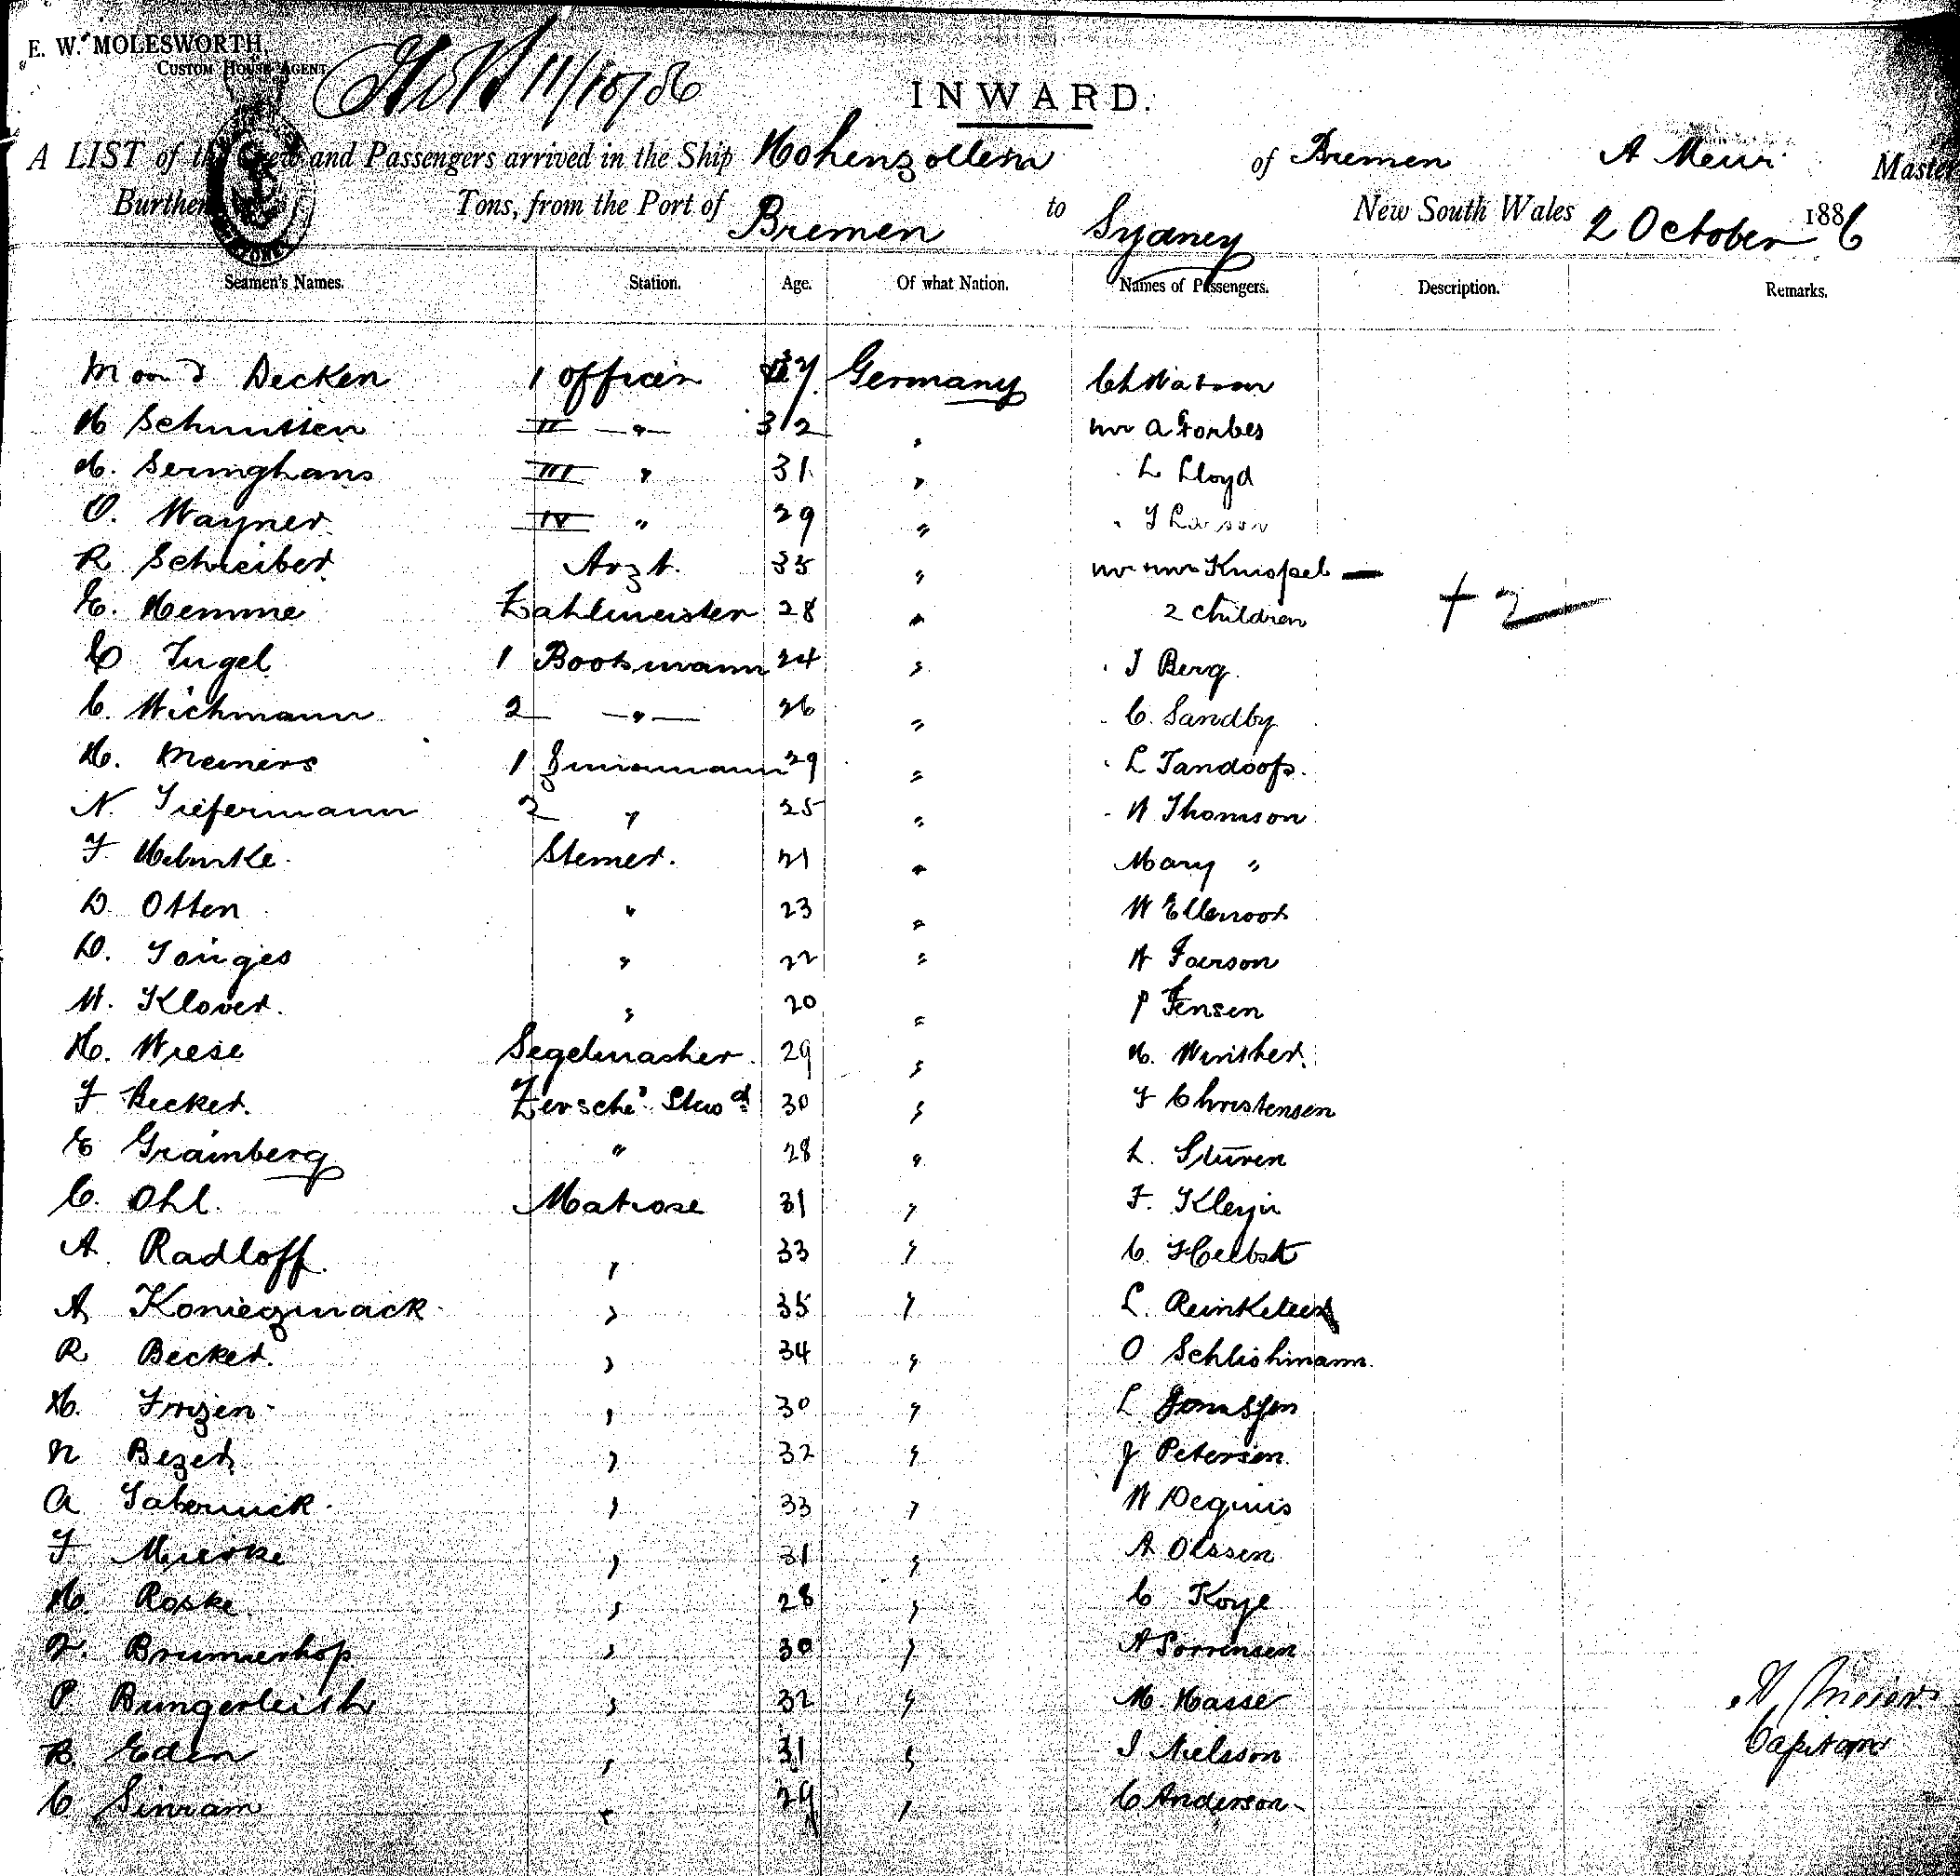 E. W. MOLESWORTH,
CUSTOM HOUSE AGENT
11/10/86
INWARD.
A LIST of the Crew and Passengers arrived in the Ship Hohenzollern of Bremen A Meier Master
Burthen Tons, from the Port of Bremen to Sydney New South Wales 2 October 1886
Seamen's Names. Station. Age. Of what Nation. Names of Passengers. Description. Remarks.
Decken 1 officier 37 Germany Ch Watson
H II " 32 " Mr A Forbes
H. Seringhans III " 31 " " L Lloyd
O. Wayner IV " 29 "
R Schreiber Arzt. 35 " Mr Mrs Knispel —
E. Hemme Zahlmeister 28 " 2 Children + 2
C Tugel 1 Bootsmann 24 " " J Berg
C. Wichmann 2 " 26 " " C. Sandby
H. Meiners 1 Zimmermann 29 " " L Tandoofs.
N Tiefermann 2 " 25 " " A Thomson
F Stemer. 21 " Mary "
D Otten " 23 " W
D. Tonges " 22 " A
W. Klover. " 20 " P Jensen
H. Wiese Segelmacher 29 " H. Winther
F Becker. Zwischd Stewd 30 " F Christensen
E Grainberg " 28 " L. Stüven
C. Ohl. Matrose 31 " F. Kleyn
A Radloff. " 33 " C. Herbst
A Koniegznack " 35 " L.
R Becker. " 34 " O Schlishmann
H. Frizen " 30 " L
N Bezer " 32 " J Petersen
A Tabernick " 33 " W Dequis
F " 31 " A Olssen
H. Roske " 28 " C Koye
F. Brumerhop " 30 " A Sorrensen
P Bungerleith " 32 " M Hasse
B. Eden " 31 " J Nielsson
C Sinram " 29 " C Anderson
A Meier
Capitan